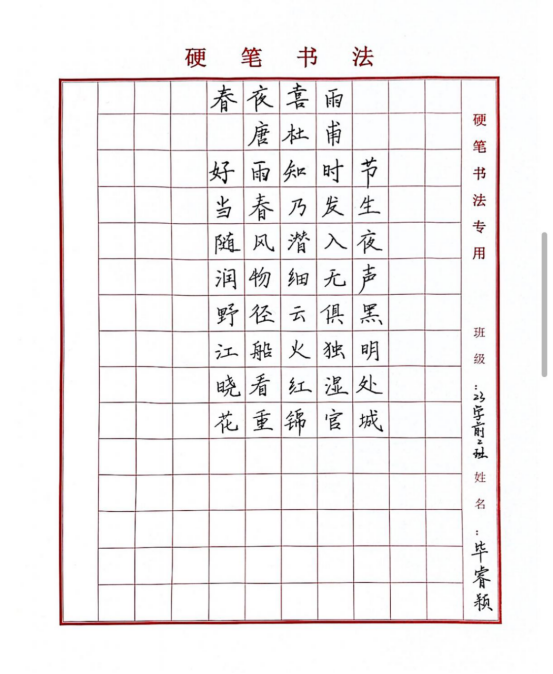 硬笔书法
春夜喜雨
唐杜甫
好雨知时节
当春乃发生
随风潜入夜
润物细无声
野径云俱黑
江船火独明
晓看红湿处
花重锦官城
硬笔书法专用
班级:23学前2班
姓名:毕睿颖